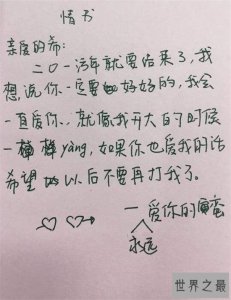 情书
亲爱的希:
二〇一
年就要结束了,我
想,说你一定要好好的,我会
一直爱你.就像我开大的时候
一 yàng,如果你也爱我的话
希望以后不要再打我了。
一 爱你的
永远
世界之最